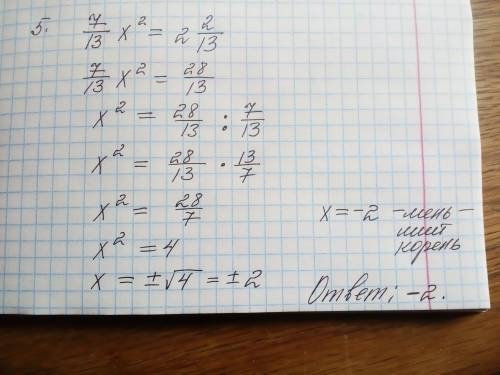 5. 7/13 x² = 2 2/13
7/13 x² = 28/13
x² = 28/13 : 7/13
x² = 28/13 · 13/7
x² = 28/7
x² = 4
x = ±√4 = ±2
x = -2 - мень-
ший
корень
Ответ: -2.